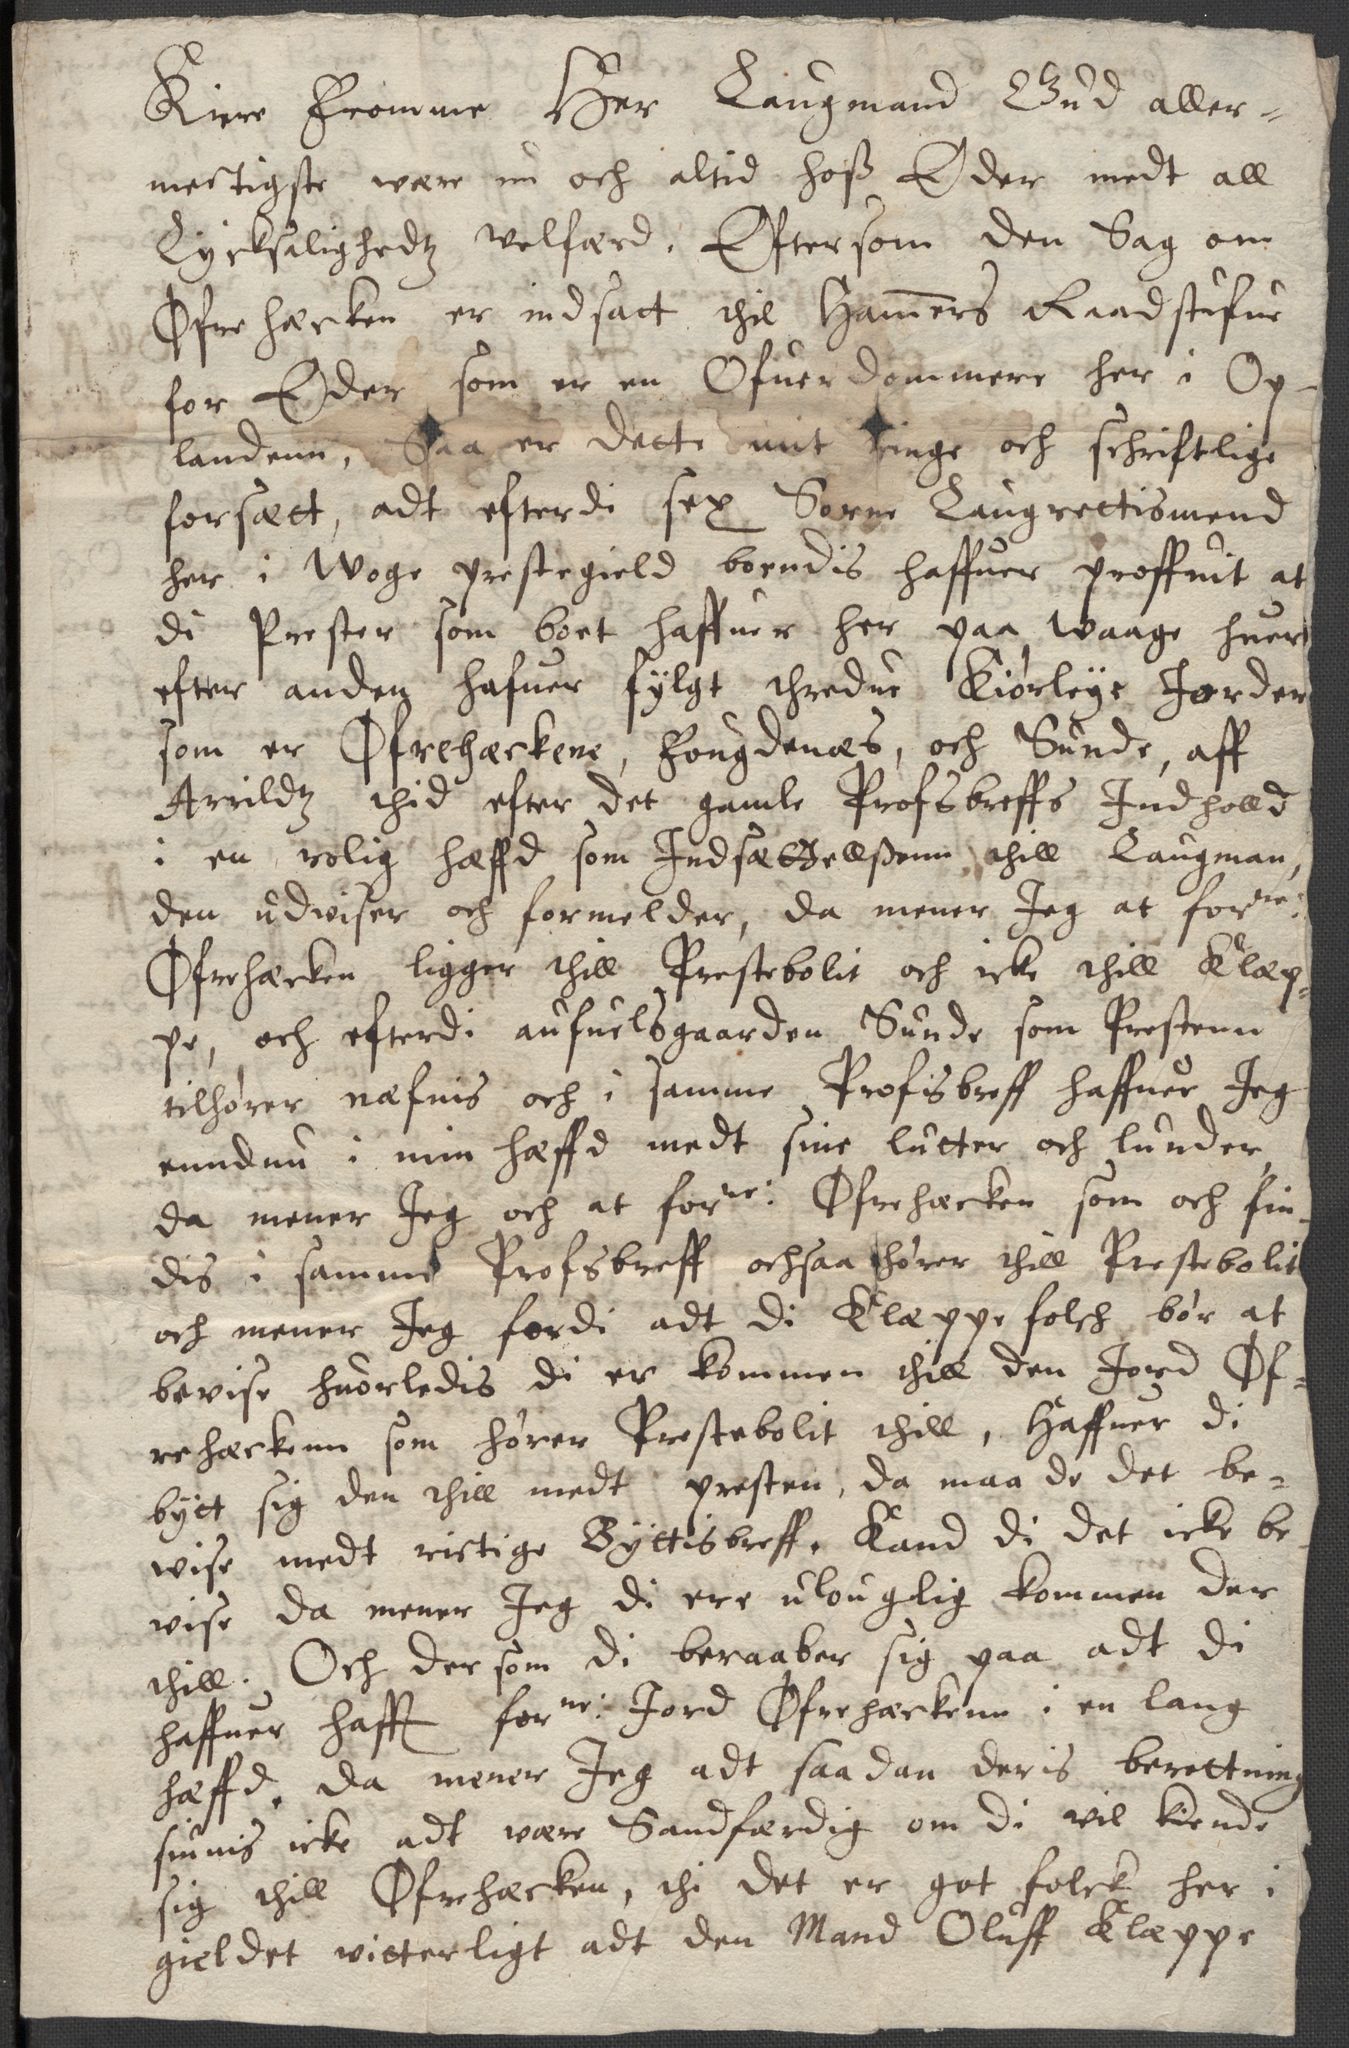 Kiere Fromme Her Laugmand Gud aller-
mectigste være nu och altid hoß Eder medt all
Lycksalighedtz velfærd. Efftersom den Sag om
Øfrehæcken er indsatt thil Ham̄ers Raadstufue
for Eder som er en Ofuerdommere her i Op-
landenn, Saa er dette mit ringe och schriftlige
forsætt, adt efterdi sex Sorne Laugrettismend
her i Woge prestegield boendis haffuer proffuit at
di Prester som boet haffuer her paa Waage huer
efter anden hafuer fylgt thredue Kiørleye Jorder
som er Øfrehæckene, Fougdenæs, och Sunde, aff
Arrildtz thid efter det gamle Profsbreffs Indholld
i en rolig hæffd som Indsættellßenn thill Laugman,
den udviser och formelder, da mener Jeg at forne:
Øfrehæcken ligger thill Prestebolit och icke thill Klæp-
pe, och efterdi aufuelsgaarden Sunde som Prestenn
tilhører næfnis och i samme Profisbreff haffuer Jeg
enndnu i min hæffd medt sine lutter och lunder,
da mener Jeg och at forne: Øfrehæcken som och fin-
dis i samme Profsbreff ochsaa hører thill Prestebolit
och mener Jeg fordi adt di Klæppe folch bør at
bevise huorledis di er kommen thill den Jord Øf-
rehæckenn som hører Prestebolit thill, Haffuer di
bytt sig den thill medt presten, da maa de det be-
wise medt rictige Byttisbreff. Kand di det icke be-
vise da mener Jeg di ere ulouglig kommen der
thill. Och dersom di beraaber sig paa adt di
haffuer hafft forne: Jord Øfrehæckenn i en lang
hæffd. da mener Jeg adt saadan deris berettning
siunis icke adt være Sandfærdig om di vil kiende
sig thill Øfrehæcken, thi det er got folck her i
gieldet vitterligt adt den Mand Oluff Klæppe